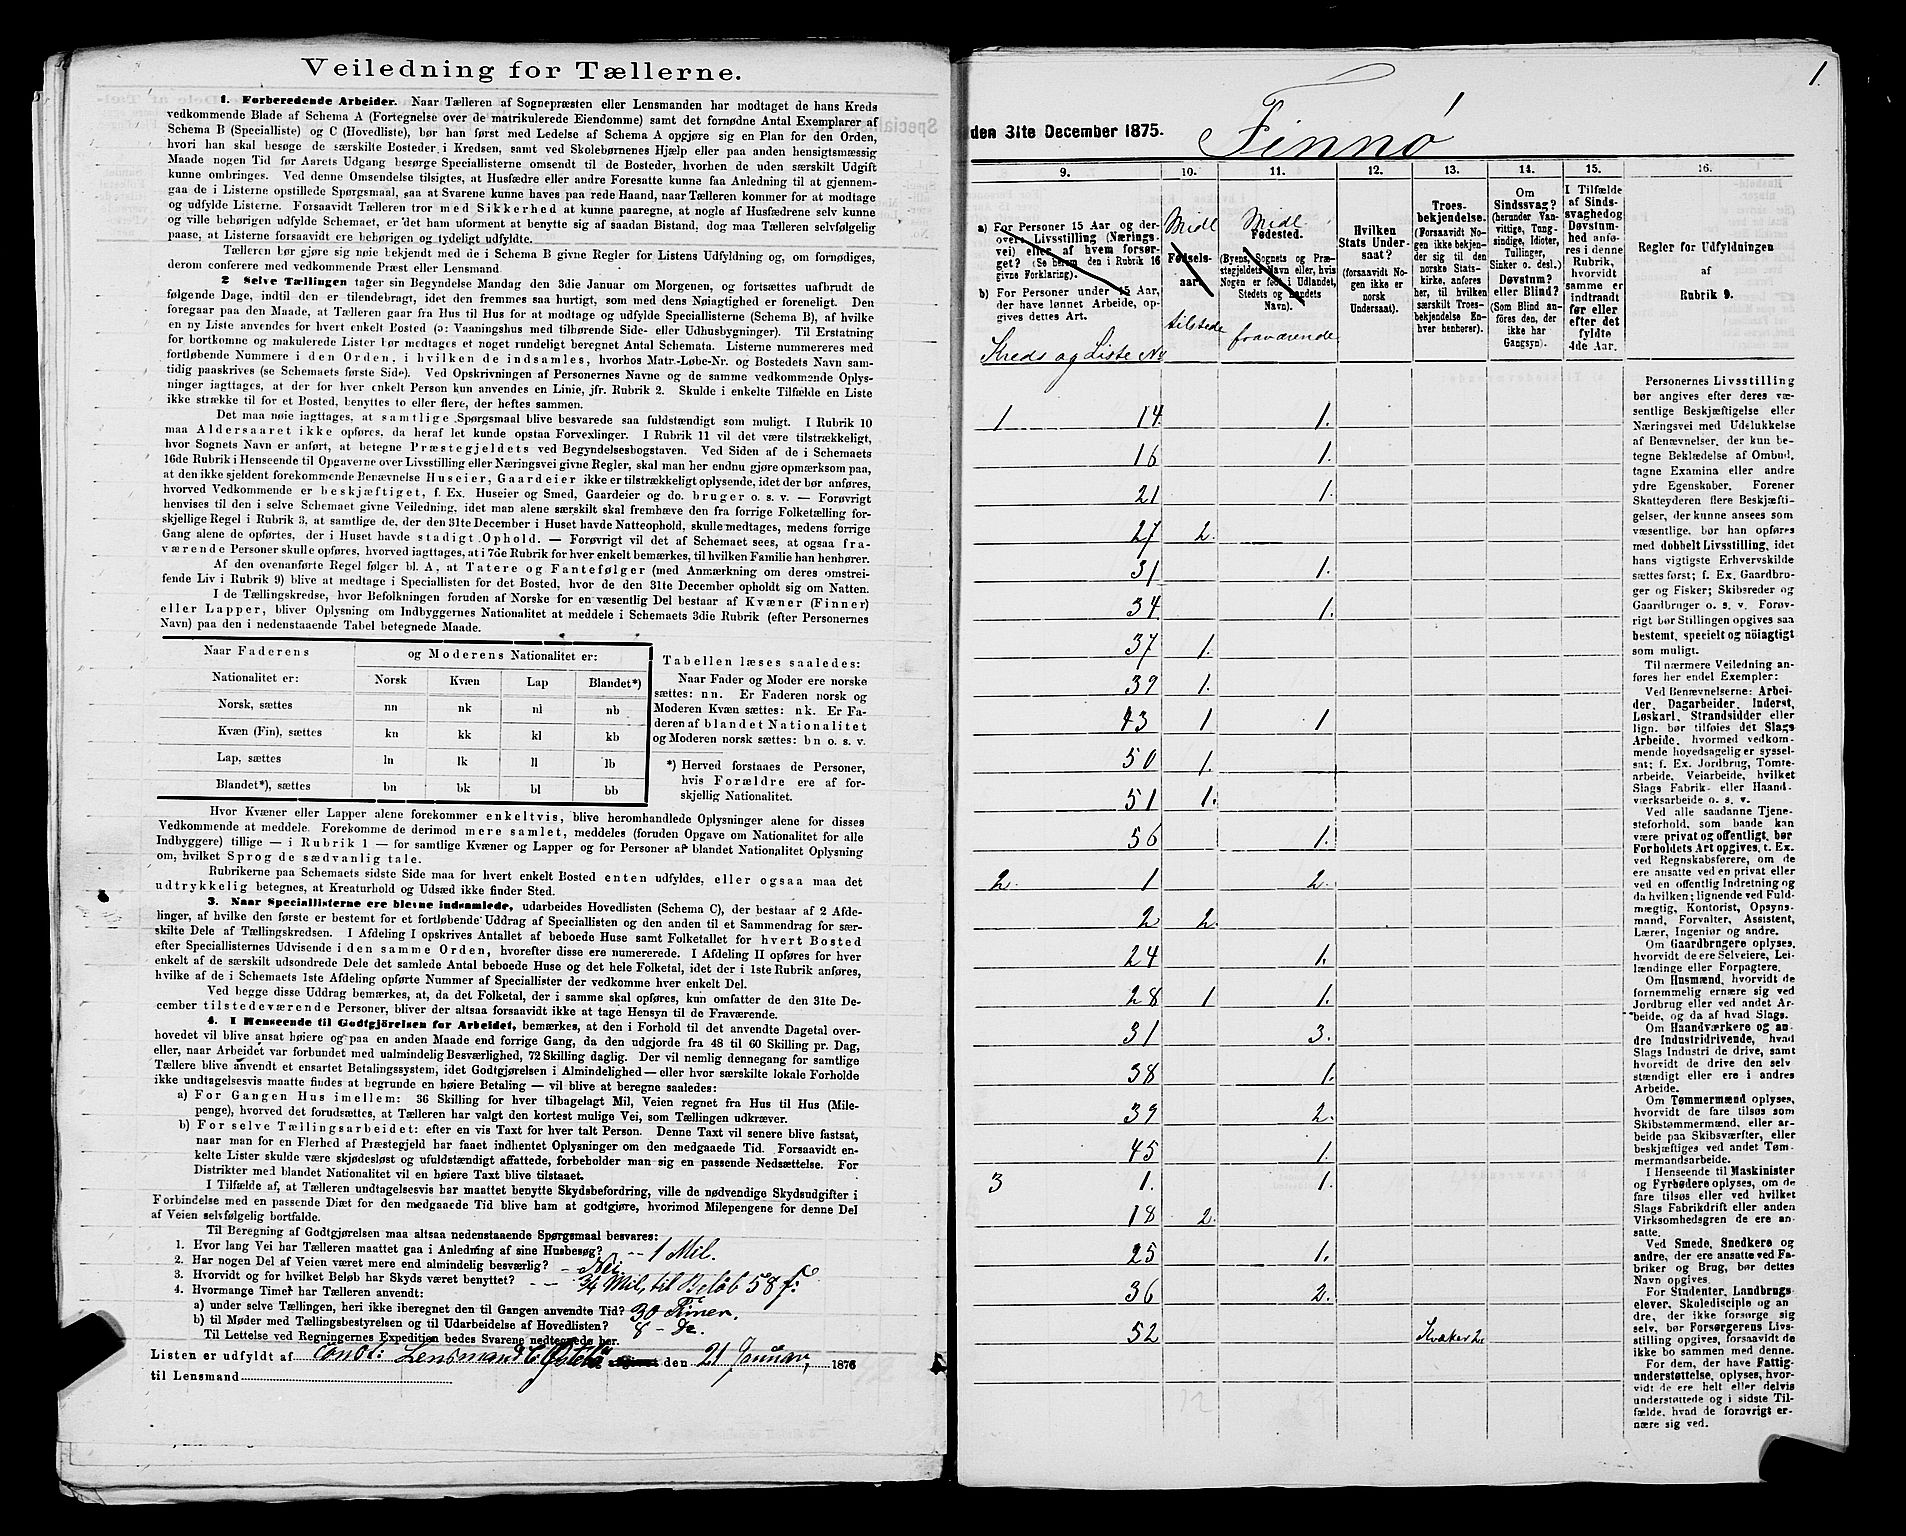 Veiledning for Tællerne.
1. Forberedende Arbeider. Naar Tælleren af Sognepræsten eller Lensmanden har modtaget de hans Kreds
vedkommende Blade af Schema A (Fortegnelse over de matrikulerede Eiendomme) samt det fornødne Antal Exemplarer af
Schema B (Specialliste) og C (Hovedliste), bør han først med Ledelse af Schema A opgjøre sig en Plan for den Orden,
hvori han skal besøge de særskilte Bosteder i Kredsen, samt ved Skolebørnenes Hjælp eller paa anden hensigtsmæssig
Maade nogen Tid før Aarets Udgang besørge Speciallisterne omsendt til de Bosteder, hvorhen de uden særskilt Udgift
kunne ombringes. Ved denne Omsendelse tilsigtes, at Husfædre eller andre Foresatte kunne faa Anledning til at gjennem-
gaa de i Listerne opstillede Spørgsmaal, saa at Svarene kunne haves paa rede Haand, naar Tælleren kommer for at modtage
og udfylde Listerne. Forsaavidt Tælleren tror med Sikkerhed at kunne paaregne, at nogle af Husfædrene selv kunne
og ville behørigen udfylde Schemaet, er det ham uforment at benytte sig af saadan Bistand, dog maa Tælleren selvfølgelig
paase, at Listerne forsaavidt ere behørigen og tydeligt udfyldte.
Tælleren bør gjøre sig nøie bekjendt med de i Schema B givne Regler for Listens Udfyldning og, om fornødiges,
derom conferere med vedkommende Præst eller Lensmand.
2 Selve Tællingen tager sin Begyndelse Mandag den 3die Januar om Morgenen, og fortsættes uafbrudt de
følgende Dage, indtil den er tilendebragt, idet den fremmes saa hurtigt, som med dens Nøiagtighed er foreneligt. Den
foregaar paa den Maade, at Tælleren gaar fra Hus til Hus for at modtage og udfylde Speciallisterne (Schema B), af hvilke
en ny Liste anvendes for hvert enkelt Bosted (ɔ: Vaaningshus med tilhørende Side- eller Udhusbygninger). Til Erstatning
for bortkomne og makulerede Lister bør medtages et noget rundeligt beregnet Antal Schemata. Listerne nummereres med
fortløbende Nummere i den Orden, i hvilken de indsamles, hvorhos Matr.-Løbe-Nr. og Bostedets Navn sam-
tidig paaskrives (se Schemaets første Side). Ved Opskrivningen af Personernes Navne og de samme vedkommende Oplys-
ninger iagttages, at der for hver enkelt Person kun anvendes en Linie, jfr. Rubrik 2. Skulde i enkelte Tilfælde en Liste
ikke strække til for et Bosted, benyttes to eller flere, der heftes sammen.
Det maa nøie iagttages, at samtlige Spørgsmaal blive besvarede saa fuldstændigt som muligt. I Rubrik 10
maa Aldersaaret ikke opføres, da heraf let kunde opstaa Forvexlinger. I Rubrik 11 vil det være tilstrækkeligt,
hvor Sognets Navn er anført, at betegne Præstegjeldets ved Begyndelsesbogstaven. Ved Siden af de i Schemaets
16de Rubrik i Henseende til Opgaverne over Livsstilling eller Næringsvei givne Regler, skal man her endnu gjøre opmærksom paa,
at den ikke sjeldent forekommende Benævnelse Huseier, Gaardeier ikke er tilstrækkeligt oplysende, idet der bør anføres,
hvorved Vedkommende er beskjæftiget, f. Ex. Huseier og Smed, Gaardeier og do. bruger o. s. v. — Forøvrigt
henvises til den i selve Schemaet givne Veiledning, idet man alene særskilt skal fremhæve den fra forrige Folketælling for-
skjellige Regel i Rubrik 3, at samtlige de, der den 31te December i Huset havde Natteophold, skulle medtages, medens forrige
Gang alene de opførtes, der i Huset havde stadigt Ophold. — Forøvrigt vil det af Schemaet sees, at ogsaa fra-
værende Personer skulle opføres, hvorved iagttages, at i 7de Rubrik for hver enkelt bemærkes, til hvilken Familie han henhører.
Af den ovenanførte Regel følger bl. A, at Tatere og Fantefølger (med Anmærkning om deres omstrei-
fende Liv i Rubrik 9) blive at medtage i Speciallisten for det Bosted, hvor de den 31te December opholdt sig om Natten.
I de Tællingskredse, hvor Befolkningen foruden af Norske for en væsentlig Del bestaar af Kvæner (Finner)
eller Lapper, bliver Oplysning om Indbyggernes Nationalitet at meddele i Schemaets 3die Rubrik (efter Personernes
Navn) paa den i nedenstaaende Tabel betegnede Maade.
Naar Faderens og Moderens Nationalitet er:
Nationalitet er: Norsk Kvæn Lap Blandet*)
Norsk, sættes nn nk nl nb
Kvæn (Fin), sættes kn kk kl kb
Lap, sættes ln lk ll lb
Blandet*), sættes bn bk bl bb
Tabellen læses saaledes:
Naar Fader og Moder ere norske
sættes: nn. Er Faderen norsk og
Moderen Kvæn sættes: nk. Er Fa-
deren af blandet Nationalitet
og Moderen norsk sættes: bn o. s. v.
*) Herved forstaaes de Personer,
hvis Forældre ere af for-
skjellig Nationalitet.
Hvor Kvæner eller Lapper alene forekommer enkeltvis, blive heromhandlede Oplysninger alene for disses
Vedkommende at meddele. Forekomme de derimod mere samlet, meddeles (foruden Opgave om Nationalitet for alle
Indbyggere) tillige — i Rubrik 1 — for samtlige Kvæner og Lapper og for Personer af blandet Nationalitet Oplysning
om, hvilket Sprog de sædvanlig tale.
Rubrikerne paa Schemaets sidste Side maa for hvert enkelt Bosted enten udfyldes, eller ogsaa maa det
udtrykkelig betegnes, at Kreaturhold og Udsæd ikke finder Sted.
3. Naar Speciallisterne ere blevne indsamlede, udarbeides Hovedlisten (Schema C), der bestaar af 2 Afde-
linger, af hvilke den første er bestemt for et fortløbende Uddrag af Speciallisten og den anden til et Sammendrag for sær-
skilte Dele af Tællingskredsen. I Afdeling I opskrives Antallet af beboede Huse samt Folketallet for hvert Bosted
efter Speciallisternes Udvisende i den samme Orden, hvorefter disse ere numererede. I Afdeling II opføres for hver
enkelt af de særskilt udsondrede Dele det samlede Antal beboede Huse og det hele Folketal, idet der i 1ste Rubrik anføres,
hvilke af de i Schemaets 1ste Afdeling opførte Nummer af Speciallister der vedkomme hver enkelt Del.
Ved begge disse Uddrag bemærkes, at, da det Folketal, der i samme skal opføres, kun omfatter de den 31te De-
cember tilstedeværende Personer, bliver der altsaa forsaavidt ikke at tage Hensyn til de Fraværende.
4. I Henseende til Godtgjörelsen for Arbeidet, bemærkes, at den i Forhold til det anvendte Dagetal over-
hovedet vil blive ansat høiere og paa en anden Maade end forrige Gang, da den udgjorde fra 48 til 60 Skilling pr. Dag,
eller, naar Arbeidet var forbundet med ualmindelig Besværlighed, 72 Skilling daglig. Der vil nemlig dennegang for samtlige
Tællere blive anvendt et ensartet Betalingssystem, idet Godtgjørelsen i Almindelighed — eller hvor særskilte lokale Forholde
ikke undtagelsesvis maatte findes at begrunde en høiere Betaling — vil blive at beregne saaledes:
a) For Gangen Hus imellem: 36 Skilling for hver tilbagelagt Mil, Veien regnet fra Hus til Hus (Mile-
penge), hvorved det forudsættes, at Tælleren har valgt den kortest mulige Vei, som Tællingen udkræver.
b) For selve Tællingsarbeidet: efter en vis Taxt for hver talt Person. Denne Taxt vil senere blive fastsat,
naar man for en Flerhed af Præstegjeld har faaet indhentet Oplysninger om den medgaaede Tid. Forsaavidt en-
kelte Lister skulde være skjødesløst og ufuldstændigt affattede, forbeholder man sig en passende Nedsættelse. For
Distrikter med blandet Nationalitet vil en høiere Taxt blive tilstaaet.
I Tilfælde af, at Tælleren undtagelsesvis har maattet benytte Skydsbefordring, ville de nødvendige Skydsudgifter i
Forbindelse med en passende Diæt for den medgaaede Tid blive ham at godtgjøre, hvorimod Milepengene for denne Del
af Veien selvfølgelig bortfalde.
Til Beregning af Godtgjørelsen maa altsaa nedenstaaende Spørgsmaal besvares:
1. Hvor lang Vei har Tælleren maattet gaa i Anledning af sine Husbesøg? -- 1 Mil.
2. Har nogen Del af Veien været mere end almindelig besværlig? - Nei
3. Hvorvidt og for hvilket Beløb har Skyds været benyttet? - - 3/4 Mil, til Beløb 58 f:
4. Hvormange Timer har Tælleren anvendt:
a) under selve Tællingen, heri ikke iberegnet den til Gangen anvendte Tid? 30 Timer.
b) til Møder med Tællingsbestyrelsen og til Udarbeidelse af Hovedlisten? 8 - Do.
Til Lettelse ved Regningernes Expedition bedes Svarene nedtegnede her.
Listen er udfyldt af const: Lensmand den 21 Januar, 1876
til Lensmand
1.
den 31te December 1875. Finnø
9. 10. 11. 12. 13. 14. 15. 16.
a) For Personer 15 Aar og der-
over: Livsstilling (Nærings-
vei) eller af hvem forsør-
get? (Se herom den i Rubrik 16
givne Forklaring).
b) For Personer under 15 Aar,
der have lønnet Arbeide, op-
gives dettes Art.
Kreds og Liste No
Midl
Fødsels-
aar.
tilstede
Midl
Fødested.
(Byens, Sognets og Præ-
stegjeldets Navn eller, hvis
Nogen er født i Udlandet,
Stedets og Landets
Navn).
fraværende
Hvilken
Stats Under-
saat?
(forsaavidt No-
gen ikke er
norsk
Undersaat).
Troes-
bekjendelse.
(Forsaavidt No-
gen ikke bekjen-
der sig til den
norske Stats-
kirke, anføres
her, til hvilken
særskilt Troes-
bekjendelse En-
hver henhører).
Om
Sindssvag?
(herunder Van-
vittige, Tung-
sindige, Idioter,
Tullinger,
Sinker o. desl.)
Døvstum?
eller Blind?
(Som Blind an-
føres den, der
ikke har
Gangsyn).
I Tilfælde
af Sinds-
svaghed og
Døvstum-
hed anfø-
res i denne
Rubrik,
hvorvidt
samme er
indtraadt
før eller
efter det
fyldte
4de Aar.
Regler for Udfyldningen
af
Rubrik 9.
1 14. 1.
16 1.
21 1.
27 2.
31 1.
34 1.
37 1.
39 1.
43 1 1
50 1.
51 1.
56 1.
2. 1 2.
2 2.
24 1.
28 1 1.
31 3.
38 1.
39 2.
45 1.
3 1. 1.
18 2.
25 1.
36 2.
52
Personernes Livsstilling
bør angives efter deres væ-
sentlige Beskjæftigelse eller
Næringsvei med Udelukkelse
af Benævnelser, der kun be-
tegne Beklædelse af Ombud,
tagne Examina eller andre
ydre Egenskaber. Forener
Skatteyderen flere Beskjæfti-
gelser, der kunne ansees som
væsentlige, bør han opføres
med dobbelt Livsstilling, idet
hans vigtigste Erhvervskilde
sættes først; f. Ex. Gaardbru-
ger og Fisker; Skibsreder og
Gaardbruger o. s. v. Forøv-
rigt bør Stillingen opgives saa
bestemt, specielt og nöiagtigt
som muligt.
Til nærmere Veiledning an-
føres her endel Exempler:
Ved Benævnelserne: Arbei-
der, Dagarbeider, Inderst,
Løskarl, Strandsidder eller
lign. bør tilføies det Slags
Arbeide, hvormed vedkom-
mende hovedsagelig er syssel-
sat; f. Ex. Jordbrug, Tomte-
arbeide, Veiarbeide, hvilket
Slags Fabrik- eller Haand-
værksarbeide o. s. v.
Ved alle saadanne Tjene-
steforhold, som baade kan
være privat og offentligt, bør
Forholdets Art opgives, t. Ex.
ved Regnskabsførere, om de
ere ansatte ved en privat eller
ved en offentlig Indretning og
da hvilken; lignende ved Fuld-
mægtig, Kontorist, Opsyns-
mand, Forvalter, Assistent,
Lærer, Ingeniør og andre.
Om Gaardbrugere oplyses,
hvorvidt de ere Selveiere, Lei-
lændinge eller Forpagtere.
Om Husmænd, hvorvidt de
fornemmelig ernære sig ved
Jordbrug eller ved andet Ar-
beide, og da af hvad Slags.
Om Haandværkere og an-
dre Industridrivende, hvad
Slags Industri de drive, samt
hvorvidt de drive den selv-
stændigt eller ere i andres
Arbeide.
Om Tømmermænd oplyses,
hvorvidt de fare tilsøs som
Skibstømmermænd, eller ar-
beide paa Skibsværfter, eller
beskjæftiges ved andet Tøm-
mermandsarbeide.
I Henseende til Maskinister
og Fyrbødere oplyses, om de
fare tilsøs eller ved hvilket
Slags Fabrikdrift eller anden
Virksomhedsgren de ere an-
satte.
Ved Smede, Snedkere og
andre, der ere ansatte ved Fa-
briker og Brug, bør dettes
Navn opgives.
For Studenter, Landbrugs-
elever, Skoledisciple og an-
dre, der ikke forsørge sig
selv, bør Forsørgerens Livs-
stilling opgives, forsaavidt de
ikke bo sammen med denne.
For dem, der have Fattig-
understøttelse, oplyses, hvor-
vidt de ere helt eller delvis
understøttede og i sidste Til-
fælde, hvad de forøvrigt er-
nære sig ved.